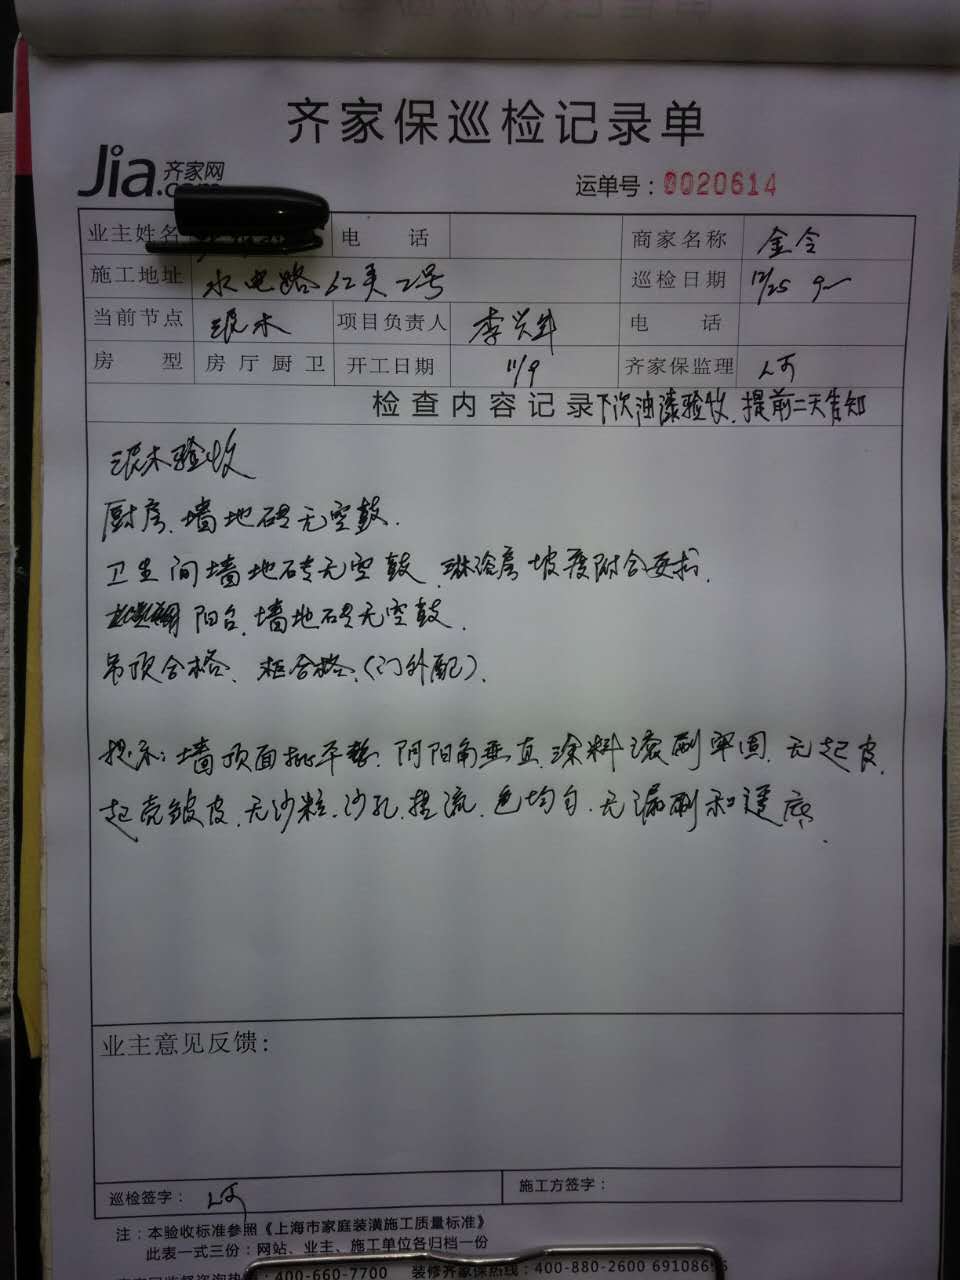 齐家保巡检记录单
Jia.com 齐家网
运单号：0020614
业主姓名 电 话 商家名称 金令
施工地址 水电路62弄2号 巡检日期 12/25
当前节点 泥木 项目负责人 李兴年 电 话
房 型 房 厅 厨 卫 开工日期 11/9 齐家保监理
检查内容记录 下次油漆验收，提前二天告知
泥木验收
厨房、墙地砖无空鼓.
卫生间墙地砖无空鼓、淋浴房坡度附合要求.
阳台、墙地砖无空鼓.
吊顶合格、柜合格、(门外配).
提示：墙顶面批平整、阴阳角垂直、涂料滚刷牢固、无起皮、
起壳皱皮、无沙粒、沙孔、挂流、色均匀、无漏刷和透底.
业主意见反馈：
巡检签字： 施工方签字：
注：本验收标准参照《上海市家庭装潢施工质量标准》
此表一式三份：网站、业主、施工单位各归档一份
400-660-7700 装修齐家保热线：400-880-2600